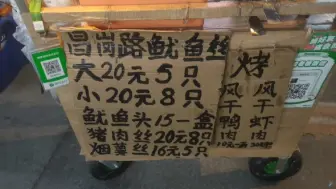 昌岗路鱿鱼丝
大20元5只
小20元8只
鱿鱼头15一盒
猪肉丝20元8只
烟薯丝16元5只
烤
风干鸭肉
风干虾肉